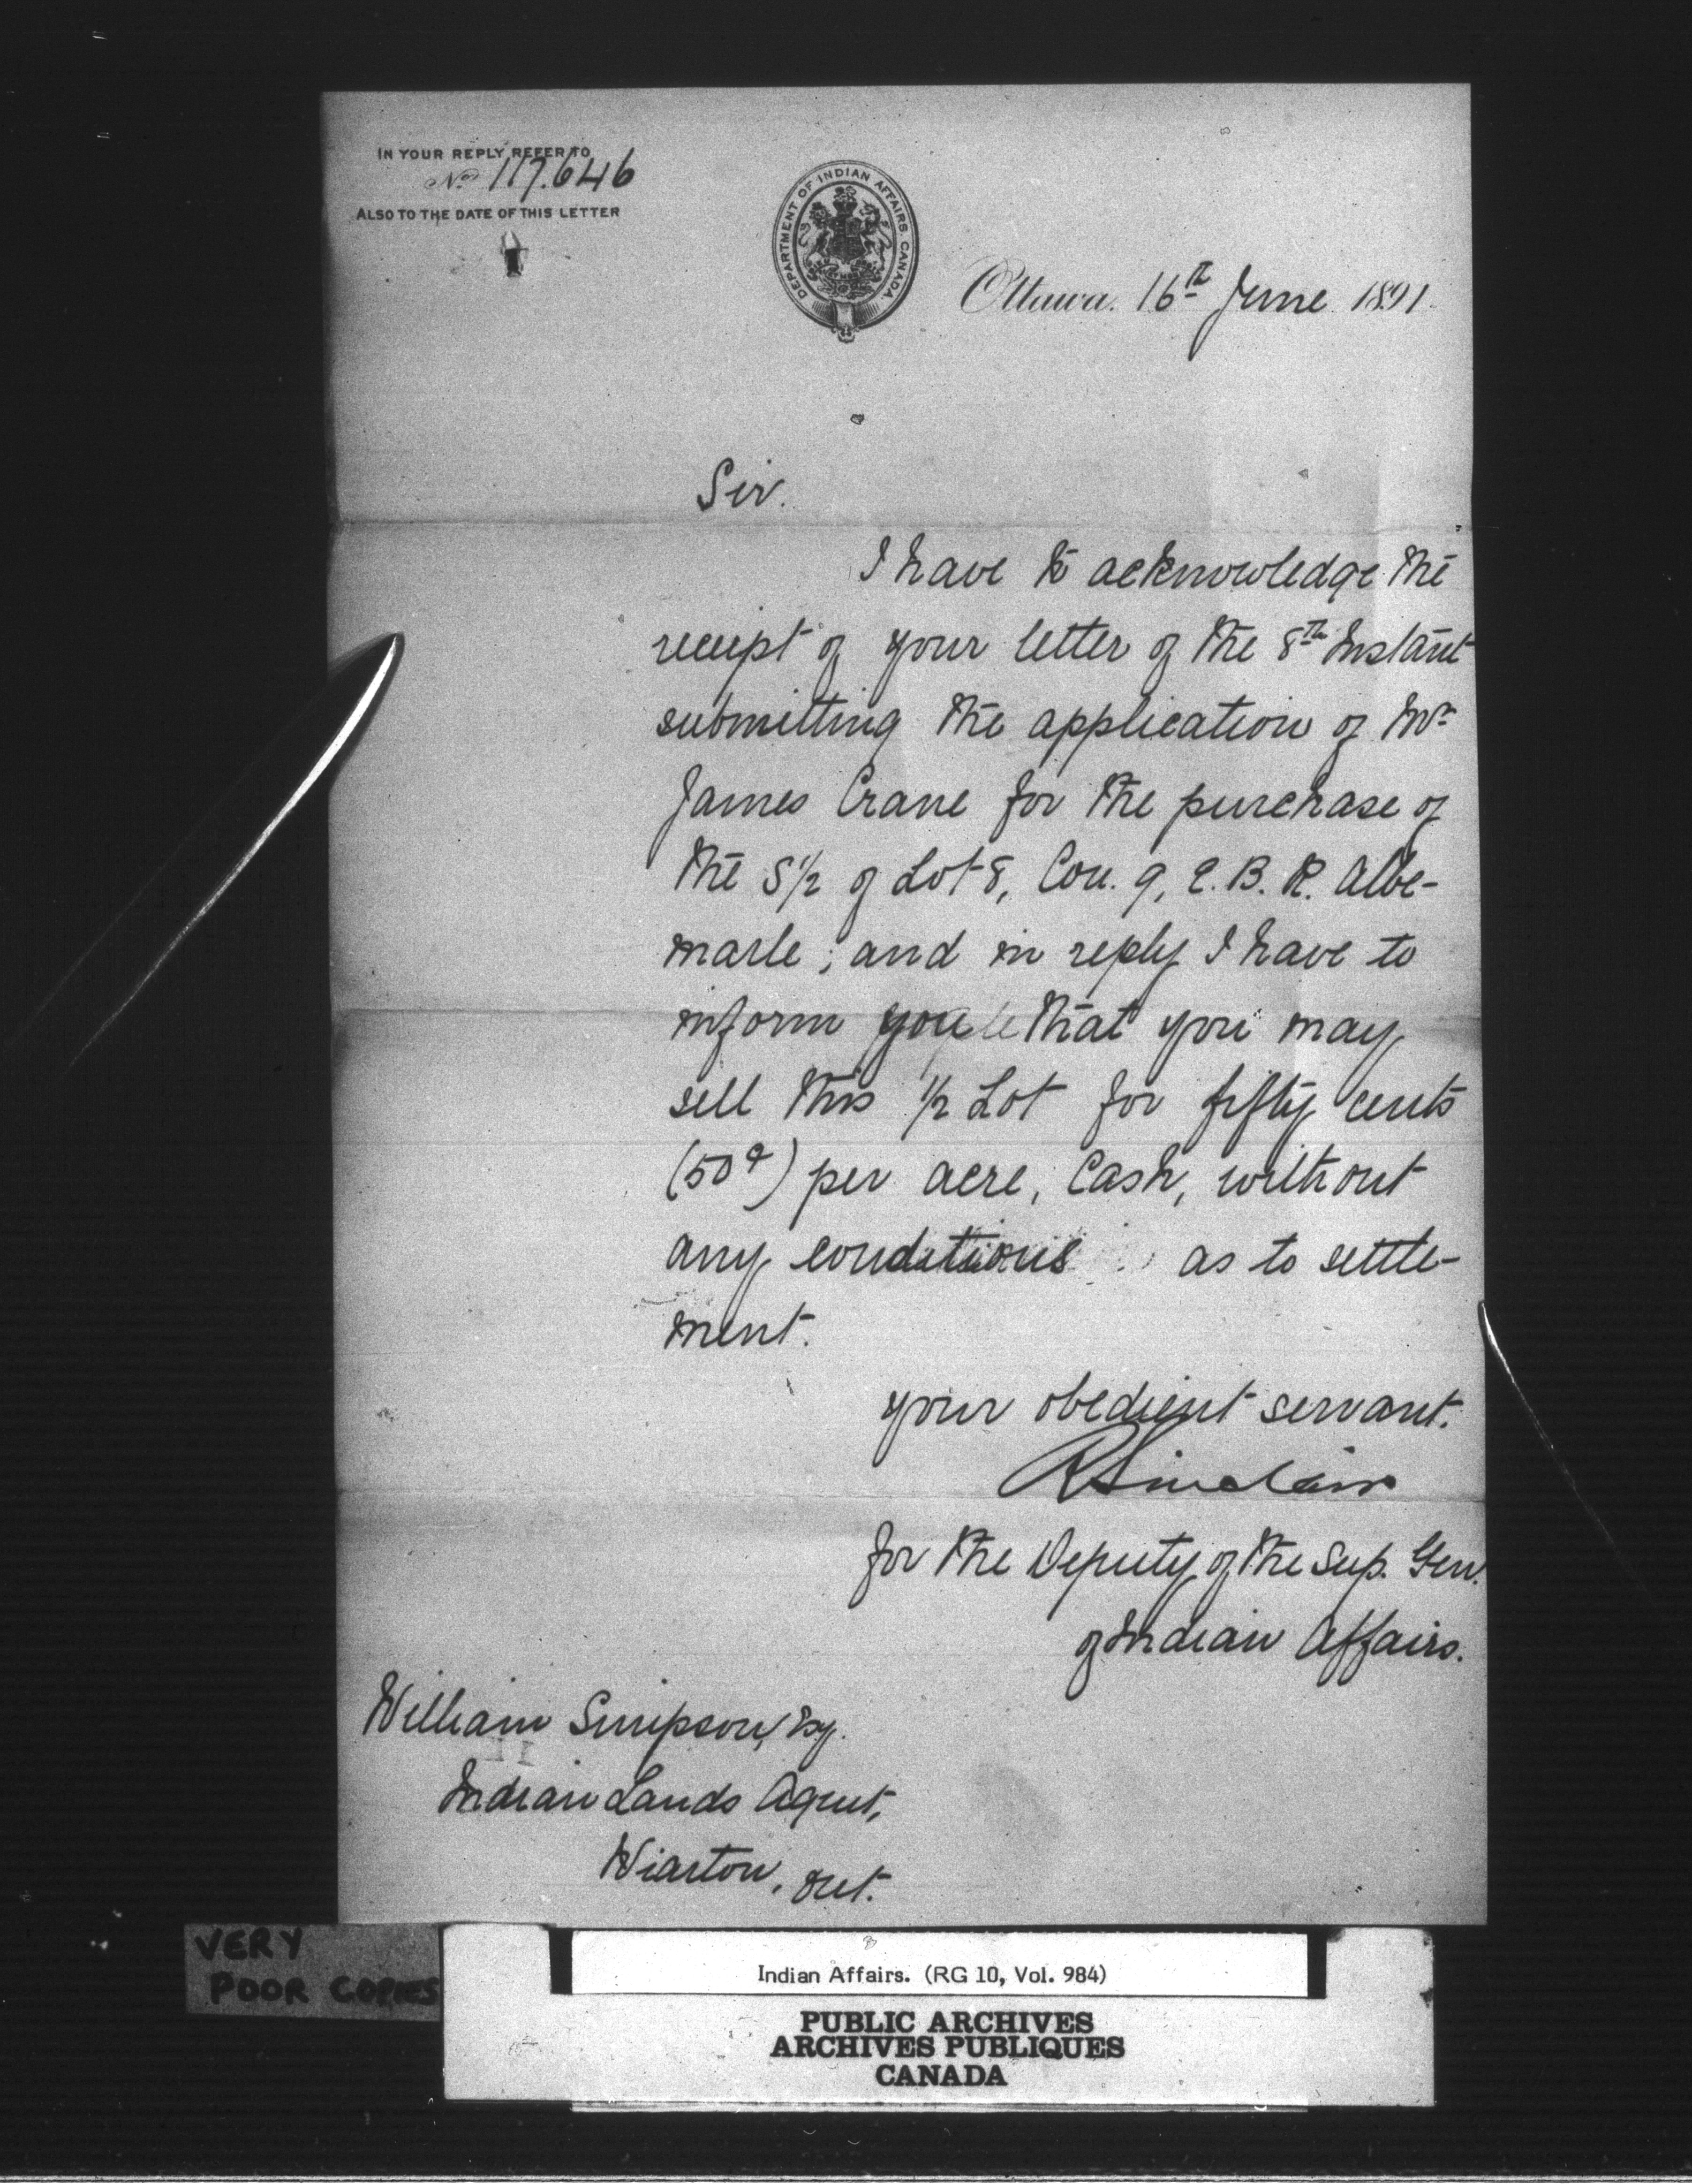 IN YOUR REPLY REFER TO
No 117.646
ALSO TO THE DATE OF THIS LETTER
DEPARTMENT OF INDIAN AFFAIRS. CANADA
Ottawa. 16th June 1891
Sir.
I have to acknowledge the
receipt of your letter of the 8th Instant
submitting the application of Mr
James Crane for the purchase of
the S 1/2 of Lot 8, Con. 9, E. B. R. Albe-
marle; and in reply I have to
inform you that you may
sell this 1/2 Lot for fifty cents
(50¢) per acre, Cash, without
any conditions as to settle-
ment.
your obedient servant.
R Sinclair
for the Deputy of the Sup. Gen.
of Indian Affairs.
William Simpson, Esq.
Indian Lands Agent,
Wiarton, Ont.
VERY
POOR COPIES
Indian Affairs. (RG 10, Vol. 984)
PUBLIC ARCHIVES
ARCHIVES PUBLIQUES
CANADA